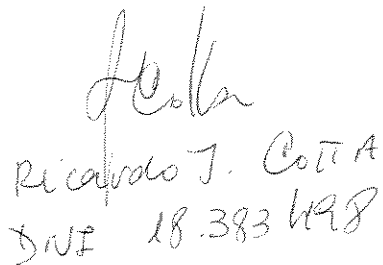 Ricardo J. COTTA
DNI 18.383.498